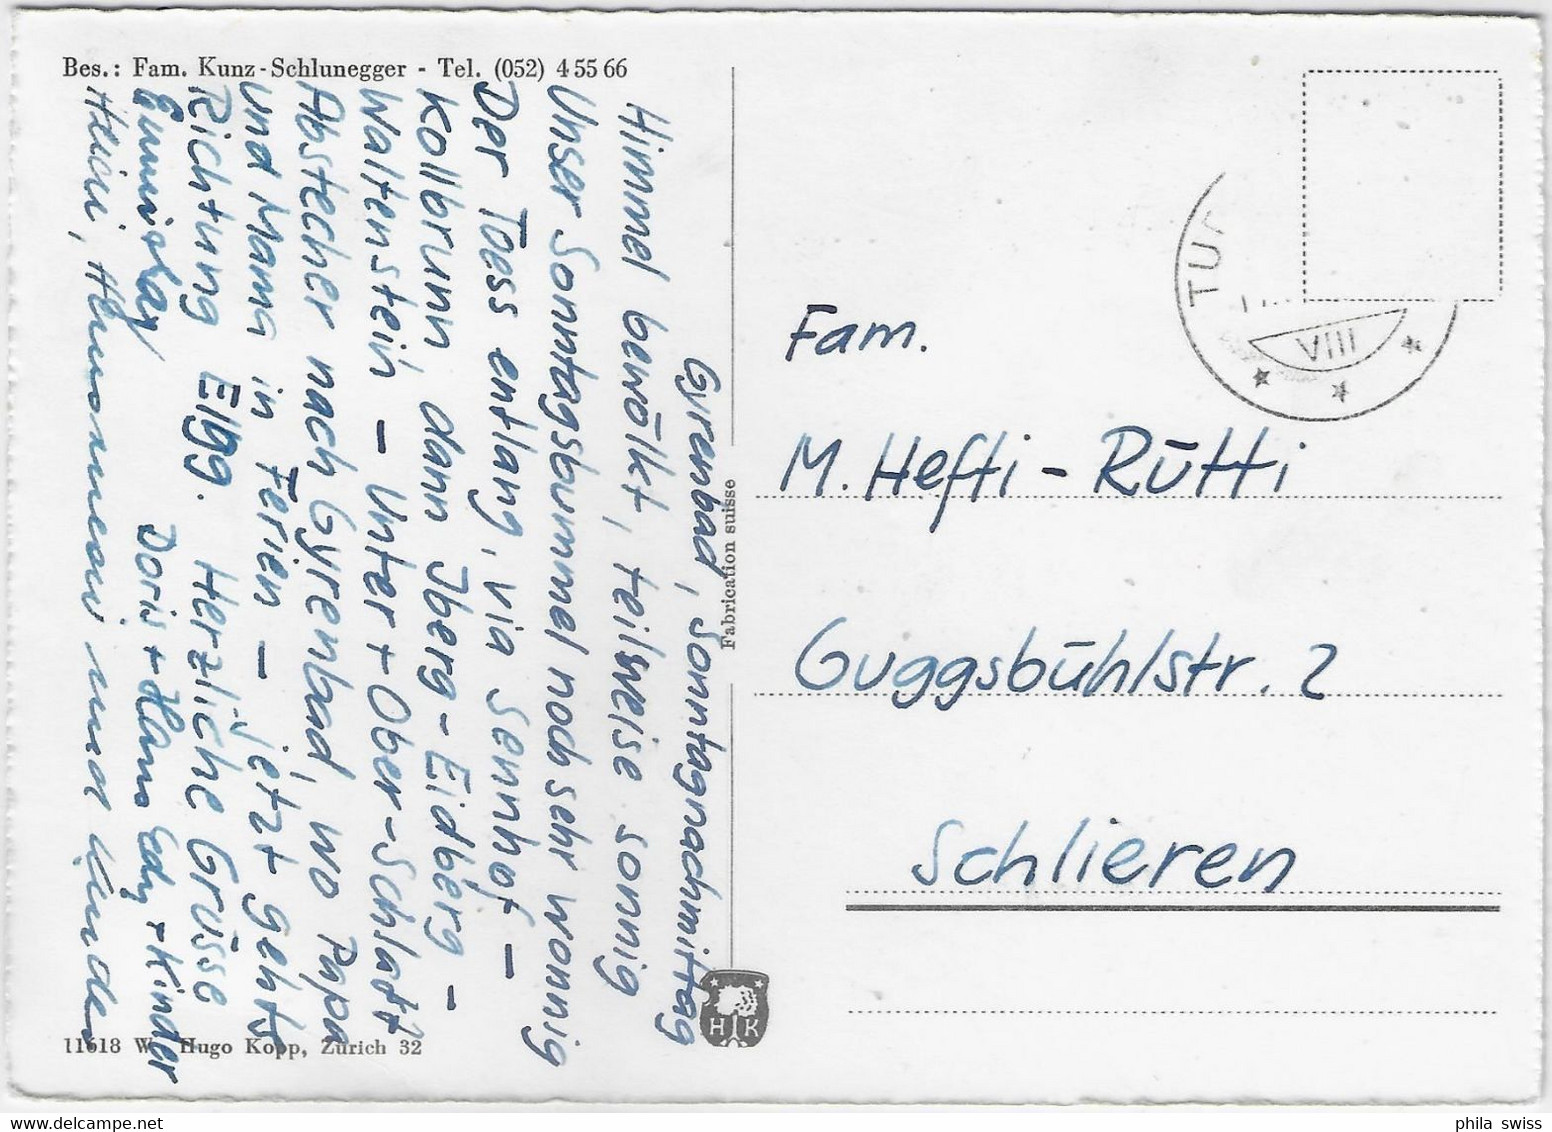 Bes.: Fam. Kunz-Schlunegger - Tel. (052) 4 55 66
Gyrenbad, Sonntagnachmittag
Himmel bewölkt, teilweise sonnig
Unser Sonntagsbummel noch sehr wonnig
Der Toess entlang, via Sennhof -
Kollbrunn, dann Jberg - Eidberg -
Waltenstein - Unter + Ober-Schlatt
Abstecher nach Gyrenbad, wo Papa
und Mama in Ferien - jetzt gehts
Richtung Elgg. Herzliche Grüsse
Doris + Hans Edy + Kinder
und Kinder
11618 W Hugo Kopp, Zürich 32
Fabrication suisse
H K
TU
VIII
Fam.
M. Hefti - Rütti
Guggsbühlstr. 2
Schlieren
phila swiss